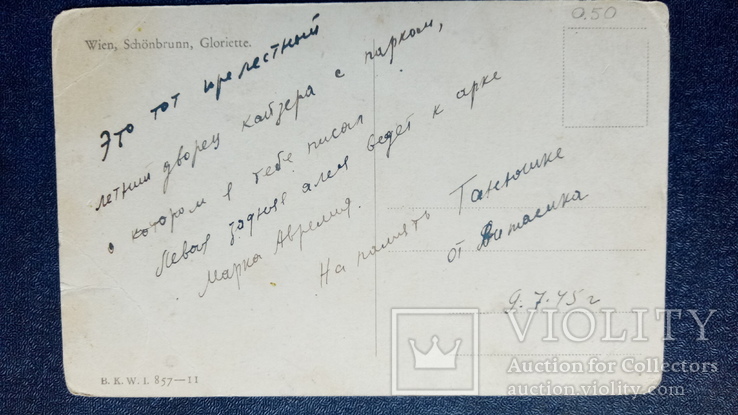 0.50
Wien, Schönbrunn, Gloriette.
Это тот прелестный
летний дворец кайзера с парком,
о котором я тебе писал
Левая задняя аллея ведёт к арке
Марка Аврелия.
На память Танюшке
от Виталика
9.7.45 г
B. K. W. I. 857—11
VIOLITY
Auction for Collectors
auction.violity.com